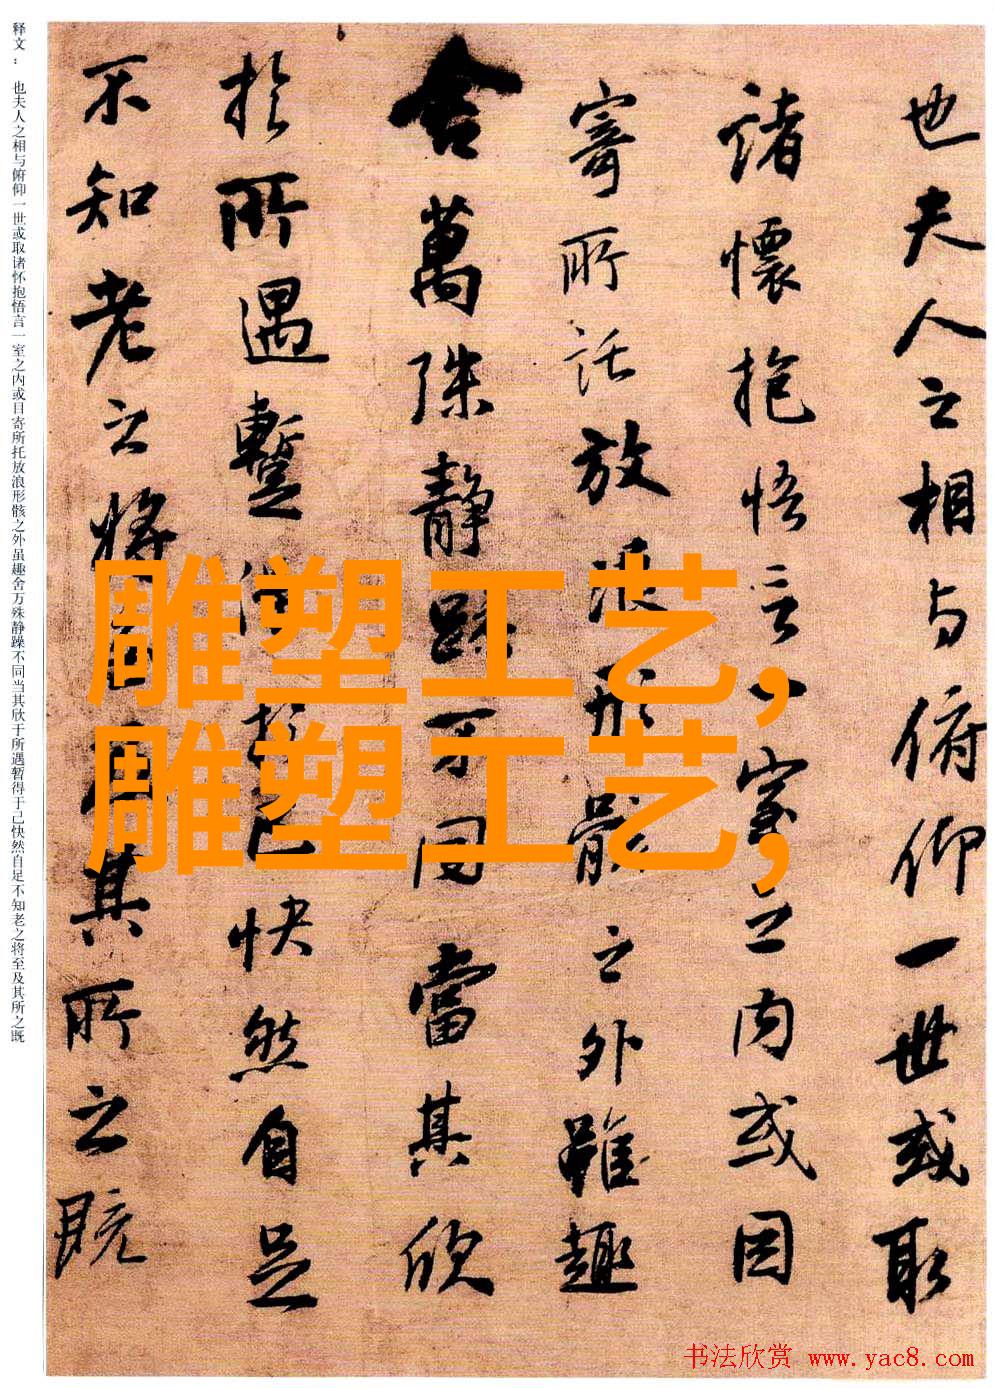 也夫人之相与俯仰一世或取
諸懷抱悟言一室之内或因
寄所託放浪形骸之外雖趣
舍萬殊静躁不同當其欣
於所遇暫得於己快然自足
不知老之將至及其所之既
释文：也夫人之相与俯仰一世或取诸怀抱悟言一室之内或目寄所托放浪形骸之外虽趣舍万殊静躁不同当其欣于所遇暂得于己快然自足不知老之将至及其所之既
雕塑工艺,
雕塑工艺,
书法欣赏 www.yac8.com